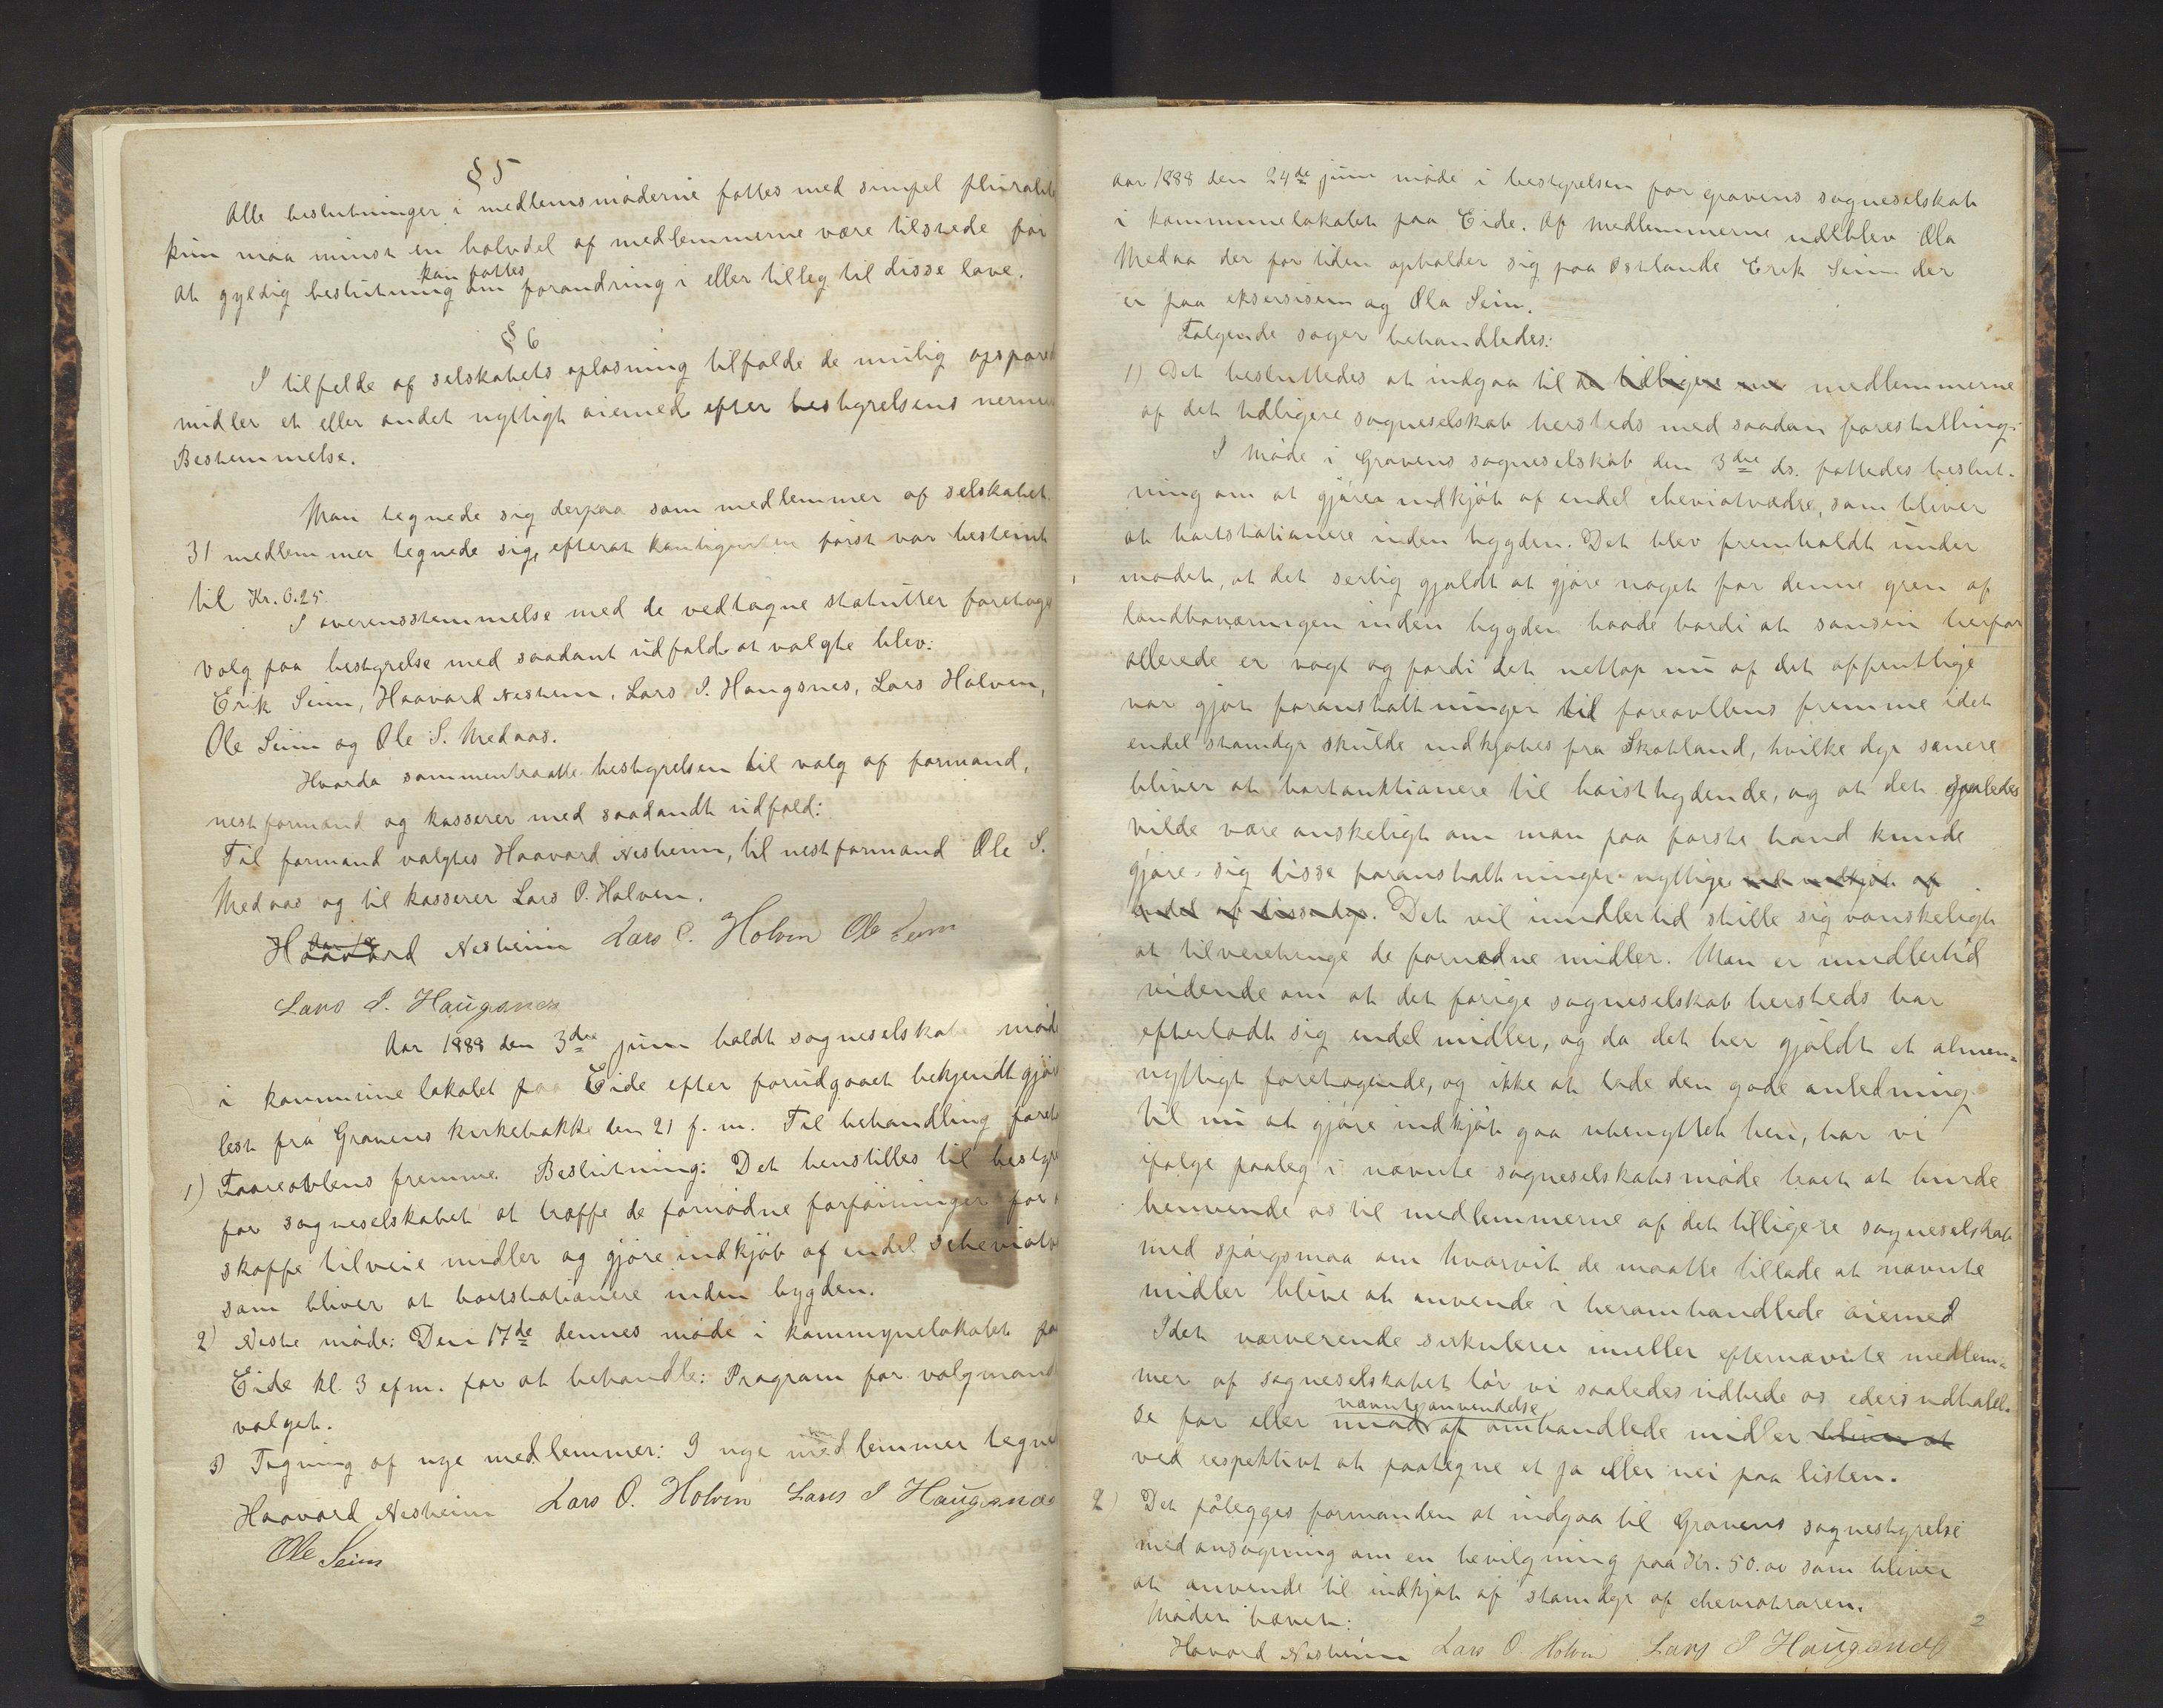 § 5
Alle beslutninger i medlemsmøderne fattes med simpel pluralite
kun maa minst en halvdel af medlemmerne være tilstede for
kan fattes
at gyldig beslutning om forandring i eller tilleg til disse lave.
§ 6
I tilfelde af selskabets opløsning tilfalde de mulig opspared
midler et eller andet nyttigt øiemed efter bestyrelsens nermer
Bestemmelse.
Man tegnede sig derpaa som medlemmer af selskabet.
31 medlemmer tegnede sig, efterat kontigenten først var bestemt
til Kr. 0.25
I overensstemmelse med de vedtagne statutter foretoges
valg paa bestyrelse med saadant udfald at valgte blev:
Erik Seim, Haavard Nesheim, Lars I. Haugsnes, Lars Halven,
Ole Seim og Ole S. Medaas.
Hvorda sammentraatte bestyrelsen til valg af formand,
nestformand og kasserer med saadandt udfald:
Til formand valgtes Haavard Nesheim, til nestformand Ole S.
Medaas og til kasserer Lars O. Halven.
Haavard Nesheim Lars O. Holven Ole Seim
Lars I. Haugsnes
Aar 1888 den 3die juni holdt sogneselskab møde
i kommunelokalet paa Eide efter forudgaaet bekjendtgjør
lest fra Gravens kirkebakke den 21 f. m. Til behandling foret
1) Faareavlens fremme. Beslutning: Det henstilles til bestyre
for sogneselskabet at træffe de fornødne forføininger for
skaffe tilveie midler og gjøre indkjøb af endel scheviotv
som bliver at bortstationere inden bygden.
2) Neste møde: Den 17de dennes møde i kommunelokalet paa
Eide kl. 3 efm. for at behandle: Program for valgmand
valget.
3) Tegning af nye medlemmer: 9 nye medlemmer tegned
Haavard Nesheim Lars O. Holven Lars I Haugsnes
Ole Seim
Aar 1888 den 24de juni møde i bestyrelsen for gravens sogneselskab
i kommunelokalet paa Eide. Af medlemmerne udeblev Ola
Medaa der for tiden opholder sig paa Østlande Erik Seim der
er paa eksersisen og Ola Seim.
Følgende sager behandledes:
1) Det besluttedes at indgaa til de tidligere me medlemmerne
af det tidligere sogneselskab hersteds med saadan forestilling:
I Møde i Gravens sogneselskab den 3die ds. fattedes beslut-
ning om at gjøre indkjøb af endel cheviotvædre, som bliver
at bortstationere inden bygden. Det blev fremholdt under
mødet, at det serlig gjaldt at gjøre noget for denne gren af
landbonæringen inden bygden baade fordi at sansen herfor
allerede er vagt og fordi det nettop nu af det offentlige
var gjort foranstaltninger til faareavlens fremme idet
endel stamdyr skulde indkjøbes fra Skotland, hvilke dyr senere
bliver at bortauktionere til høistbydende, og at det saaledes
vilde være ønskeligt om man paa første haand kunde
gjøre sig disse foranstaltninger nyttige ved indkjøb af
endel af disse dyr. Det vil imidlertid stille sig vanskeligt
at tilveiebringe de fornødne midler. Man er imidlertid
vidende om at det forige sogneselskab hersteds har
efterladt sig endel midler, og da det her gjaldt et almen-
nyttigt foretagende, og ikke at lade den gode anledning
til nu at gjøre indkjøb gaa ubenyttet hen, har vi
ifølge paaleg i nævnte sogneselskabsmøde troet at burde
henvende os til medlemmerne af det tilligere sogneselskab
med spørgsmaa om hvorvit de maatte tillade at nævnte
midler blive at anvende i heromhandlede øiemed
Idet nærverende sirkulerer imellem efternævnte medlem-
mer af sogneselskabet tør vi saaledes udbede os eders udtalel-
nævnte anvendelse
se for eller imod af omhandlede midler bliver at
ved respektivt at paategne et ja eller nei paa listen.
2) Det pålegges formanden at indgaa til Gravens sognestyrelse
med ansøgning om en bevilgning paa Kr. 50.00 som bliver
at anvende til indkjøb af stamdyr af cheviotrasen.
Mødet hævet:
Havard Nesheim Lars O. Holven Lars I Haugsnes
2